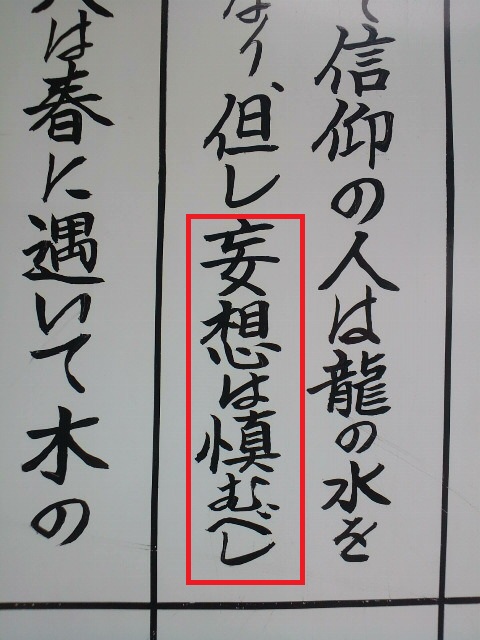 て信仰の人は龍の水を
なり、但し妄想は慎むべし
人は春に遇いて木の